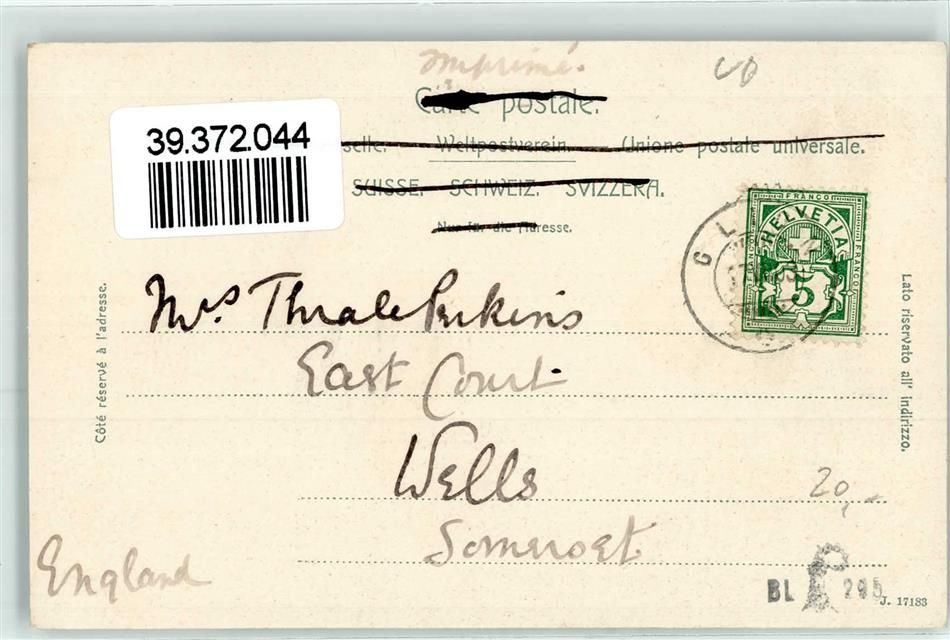 Imprimé.
Carte postale.
39.372.044
selle. Weltpostverein. Unione postale universale.
SUISSE. SCHWEIZ. SVIZZERA.
Nur für die Adresse.
FRANCO
HELVETIA
FRANCO
5
Mrs. Thrale Perkins
East Court
Wells
Somerset
England
Côté réservé à l'adresse.
Lato riservato all' indirizzo.
20,-
BL 295
J. 17183